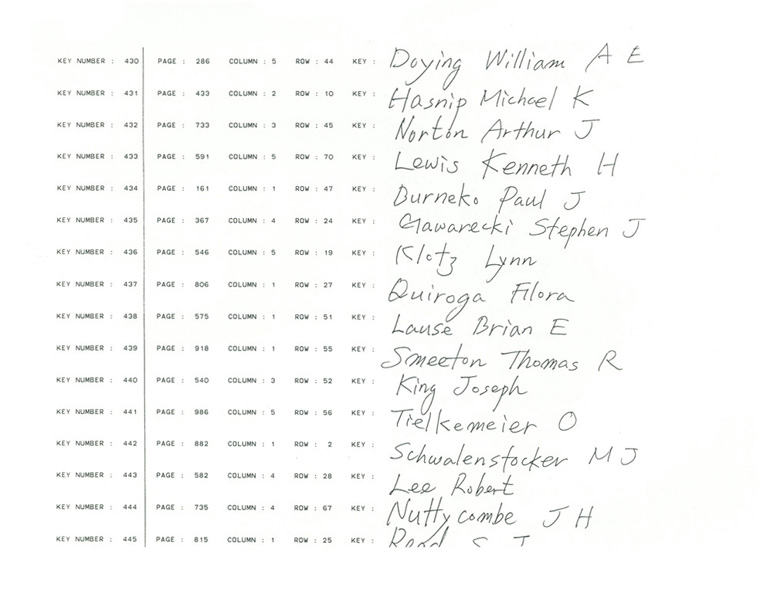 KEY NUMBER : 430 PAGE : 286 COLUMN : 5 ROW : 44 KEY : Doying William A E
KEY NUMBER : 431 PAGE : 433 COLUMN : 2 ROW : 10 KEY : Hasnip Michael K
KEY NUMBER : 432 PAGE : 733 COLUMN : 3 ROW : 45 KEY : Norton Arthur J
KEY NUMBER : 433 PAGE : 591 COLUMN : 5 ROW : 70 KEY : Lewis Kenneth H
KEY NUMBER : 434 PAGE : 161 COLUMN : 1 ROW : 47 KEY : Burneko Paul J
KEY NUMBER : 435 PAGE : 367 COLUMN : 4 ROW : 24 KEY : Gawarecki Stephen J
KEY NUMBER : 436 PAGE : 546 COLUMN : 5 ROW : 19 KEY : Klotz Lynn
KEY NUMBER : 437 PAGE : 806 COLUMN : 1 ROW : 27 KEY : Quiroga Flora
KEY NUMBER : 438 PAGE : 575 COLUMN : 1 ROW : 51 KEY : Lause Brian E
KEY NUMBER : 439 PAGE : 918 COLUMN : 1 ROW : 55 KEY : Smeeton Thomas R
KEY NUMBER : 440 PAGE : 540 COLUMN : 3 ROW : 52 KEY : King Joseph
KEY NUMBER : 441 PAGE : 986 COLUMN : 5 ROW : 56 KEY : Tielkemeier O
KEY NUMBER : 442 PAGE : 882 COLUMN : 1 ROW : 2 KEY : Schwalenstocker M J
KEY NUMBER : 443 PAGE : 582 COLUMN : 4 ROW : 28 KEY : Lee Robert
KEY NUMBER : 444 PAGE : 735 COLUMN : 4 ROW : 67 KEY : Nuttycombe J H
KEY NUMBER : 445 PAGE : 815 COLUMN : 1 ROW : 25 KEY :